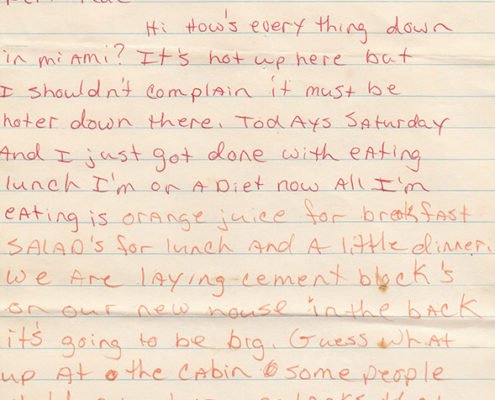 Hi How's every thing down
in miAmi? It's hot up here but
I shouldn't complAin it must be
hoter down there. TodAys SAturday
And I just got done with eAting
lunch I'm on A Diet now All I'm
eAting is orAnge juice for breakfast
SALAD's for lunch And A little dinner.
we Are lAying cement block's
on our new house in the bAck
it's going to be big. Guess whAt
up At the cAbin some people